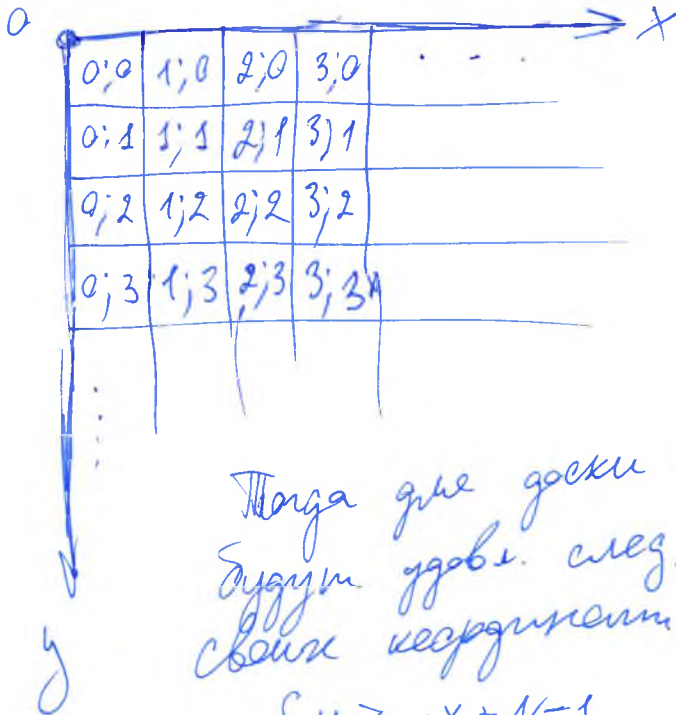 0 X
0;0 1;0 2;0 3;0 . . .
0;1 1;1 2;1 3;1
0;2 1;2 2;2 3;2
0;3 1;3 2;3 3;3
Тогда для доски
будут удовл. след.
y своих координат